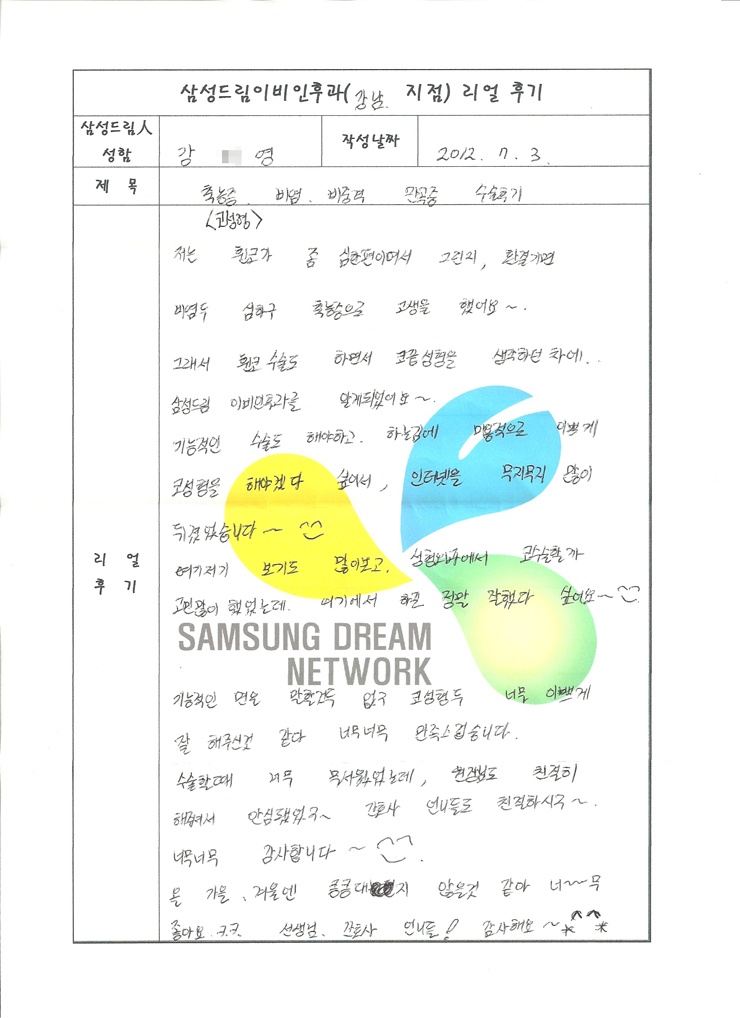 삼성드림이비인후과(강남. 지점) 리얼 후기
삼성드림人 성함
강 영
작성날짜
2012. 7. 3.
제 목
축농증. 비염. 비중격 만곡증 수술후기
<코성형>
저는 휜코가 좀 심한편이여서 그런지, 환절기면
비염두 심하구 축농증으로 고생을 했어요~.
그래서 휜코수술도 하면서 코끝성형을 생각하던 차에..
삼성드림 이비인후과를 알게되었어요~.
기능적인 수술도 해야하고. 하는김에 미용적으로 이쁘게
코성형을 해야겠다 싶어서, 인터넷을 무지무지 많이
뒤졌었습니다~ ^^
여기저기 보기도 많이보고. 성형외과에서 코수술할까
고민많이 했었는데. 여기에서 하길 정말 잘했다 싶어요~
SAMSUNG DREAM
NETWORK
리 얼
후 기
기능적인 면은 말할것두 없구 코성형두 너무 이쁘게
잘 해주신것 같다 너무너무 만족스럽습니다.
수술할때 너무 무서웠었는데, 원장님도 친절히
해주셔서 안심됐었구~ 간호사 언니들도 친절하시구~.
너무너무 감사합니다~
올 가을, 겨울엔 킁킁대지 않을것 같아 너~~무
좋아요. ㅋㅋ 선생님. 간호사 언니들! 감사해요~ *^^*